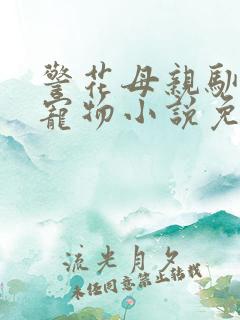 警花母親馴
寵物小說免
流光月夕
未经同意禁止转载